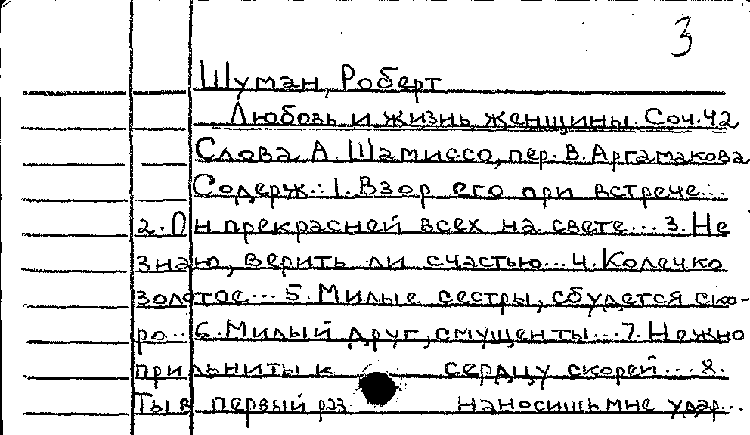 3
Шуман, Роберт
Любовь и жизнь женщины. Соч. 42
Слова А. Шамиссо, пер. В. Аргамакова
Содерж.: 1. Взор его при встрече...
2. Он прекрасней всех на свете... 3. Не
знаю, верить ли счастью... 4. Колечко
золотое... 5. Милые сестры, сбудется ско-
ро... 6. Милый друг, смущен ты... 7. Нежно
прильни ты к сердцу скорей... 8.
Ты в первый раз наносишь мне удар...